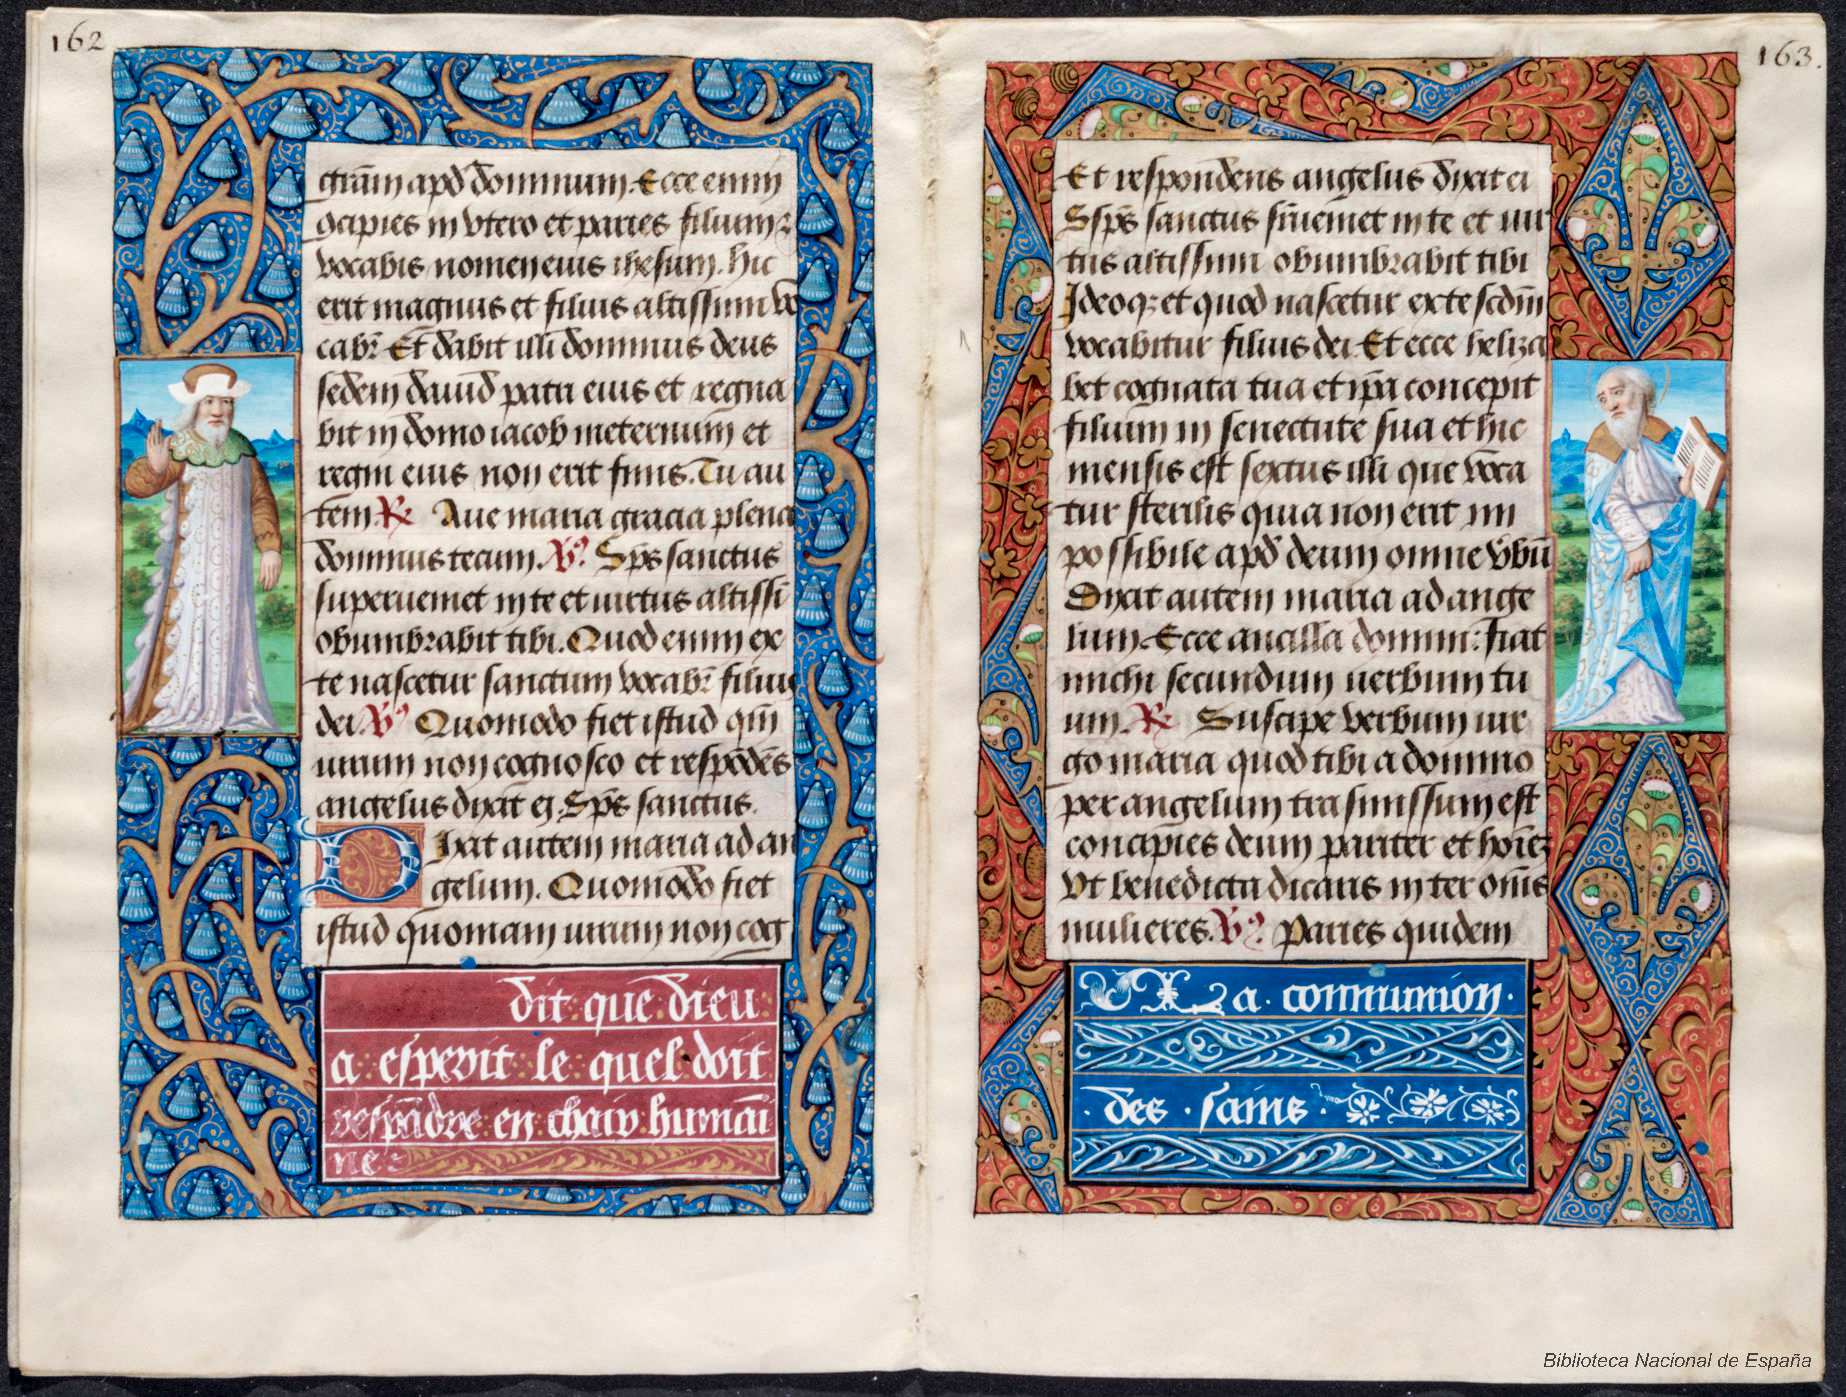 162
gr̃am apd̃ dominum. Ecce enim
ↄcipies in vtero et paries filium ⁊
vocabis nomen eius ihesum. hic
erit magnus et filius altissimi vo
cabr̃. Et dabit illi dominus deus
sedem dauid patri eius et regna
bit in domo iacob in eternum et
regni eius non erit finis. Tu au
tem. R̷ Aue maria gracia plena
dominus tecum. V̷. Sp̃s sanctus
superueniet in te et uirtus altissi
obumbrabit tibi. Quod enim ex
te nascetur sanctum vocabr̃ filius
dei. V̷. Quomodo fiet istud qm̃
uirum non cognosco et respõdẽs
angelus dixit ei. Sp̃s sanctus.
Dixit autem maria ad an
gelum. Quomodo fiet
istud quoniam uirum non cog
dit que dieu
a esperit le quel doit
respãdre en chair humai
ne
163.
Et respondens angelus dixit ei
Sp̃s sanctus sup̃ueniet in te et uir
tus altissimi obumbrabit tibi
Ideoqꝫ et quod nascetur ex te scdm̃
vocabitur filius dei. Et ecce heliza
bet cognata tua et ip̃a concepit
filium in senectute sua et hic
mensis est sextus illi que voca
tur sterilis quia non erit im
possibile apd̃ deum omne v̾bũ
Dixit autem maria ad ange
lum. Ecce ancilla domini: fiat
michi secundum uerbum tu
um. R̷ Suscipe verbum uir
go maria quod tibi a domino
per angelum trasmissum est
concipies deum pariter et hoĩez
Vt benedicta dicaris inter om̃s
mulieres. V̷. Paries quidem
La. communion.
des. sains.
Biblioteca Nacional de España